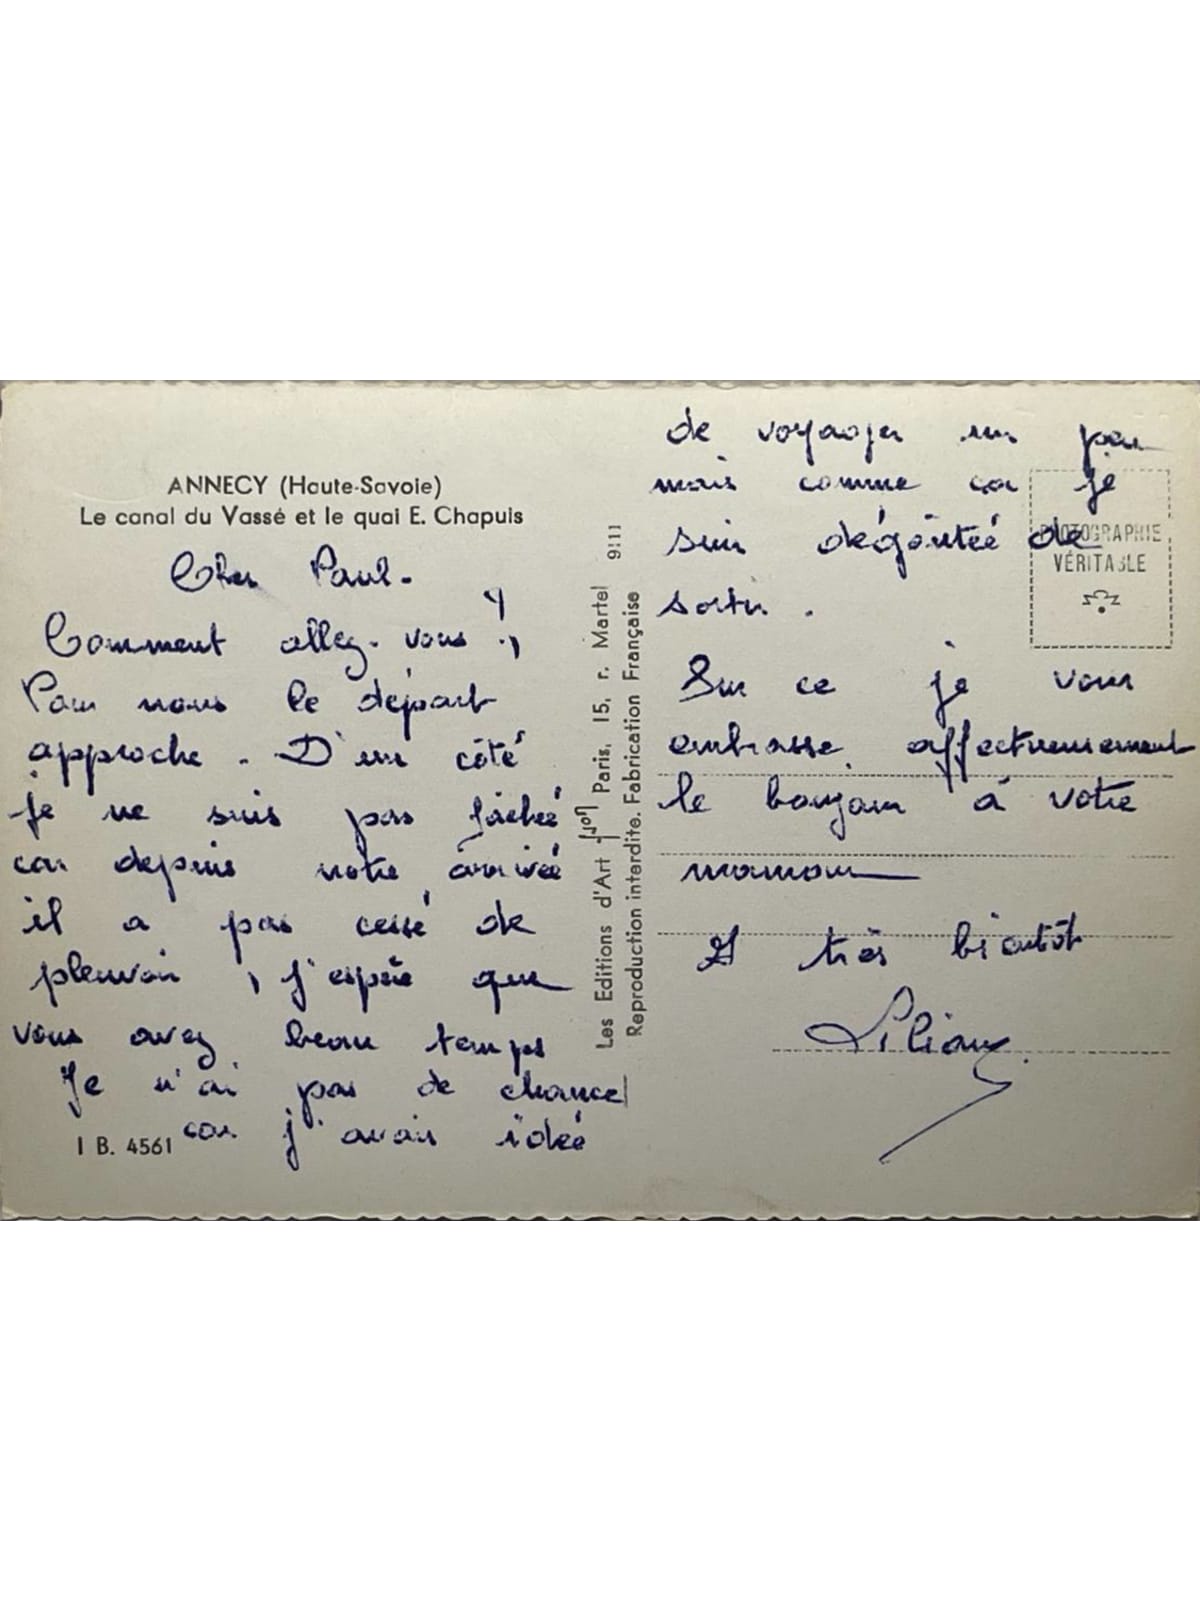 ANNECY (Haute-Savoie)
Le canal du Vassé et le quai E. Chapuis
Cher Paul.
Comment allez-vous ?
Pour nous le départ
approche. D'un côté
je ne suis pas fâchée
car depuis notre arrivée
il a pas cessé de
pleuvoir, j'espère que
vous avez beau temps
Je n'ai pas de chance
car j'avais idée
I B. 4561
Les Editions d'Art Yvon Paris, 15, r. Martel 9!11
Reproduction interdite. Fabrication Française
de voyager un peu
mais comme ça je
suis dégoûtée de
sortir.
PHOTOGRAPHIE
VÉRITABLE
Sur ce je vous
embrasse affectueusement
le bonjour à votre
maman
A très bientôt
Liliane